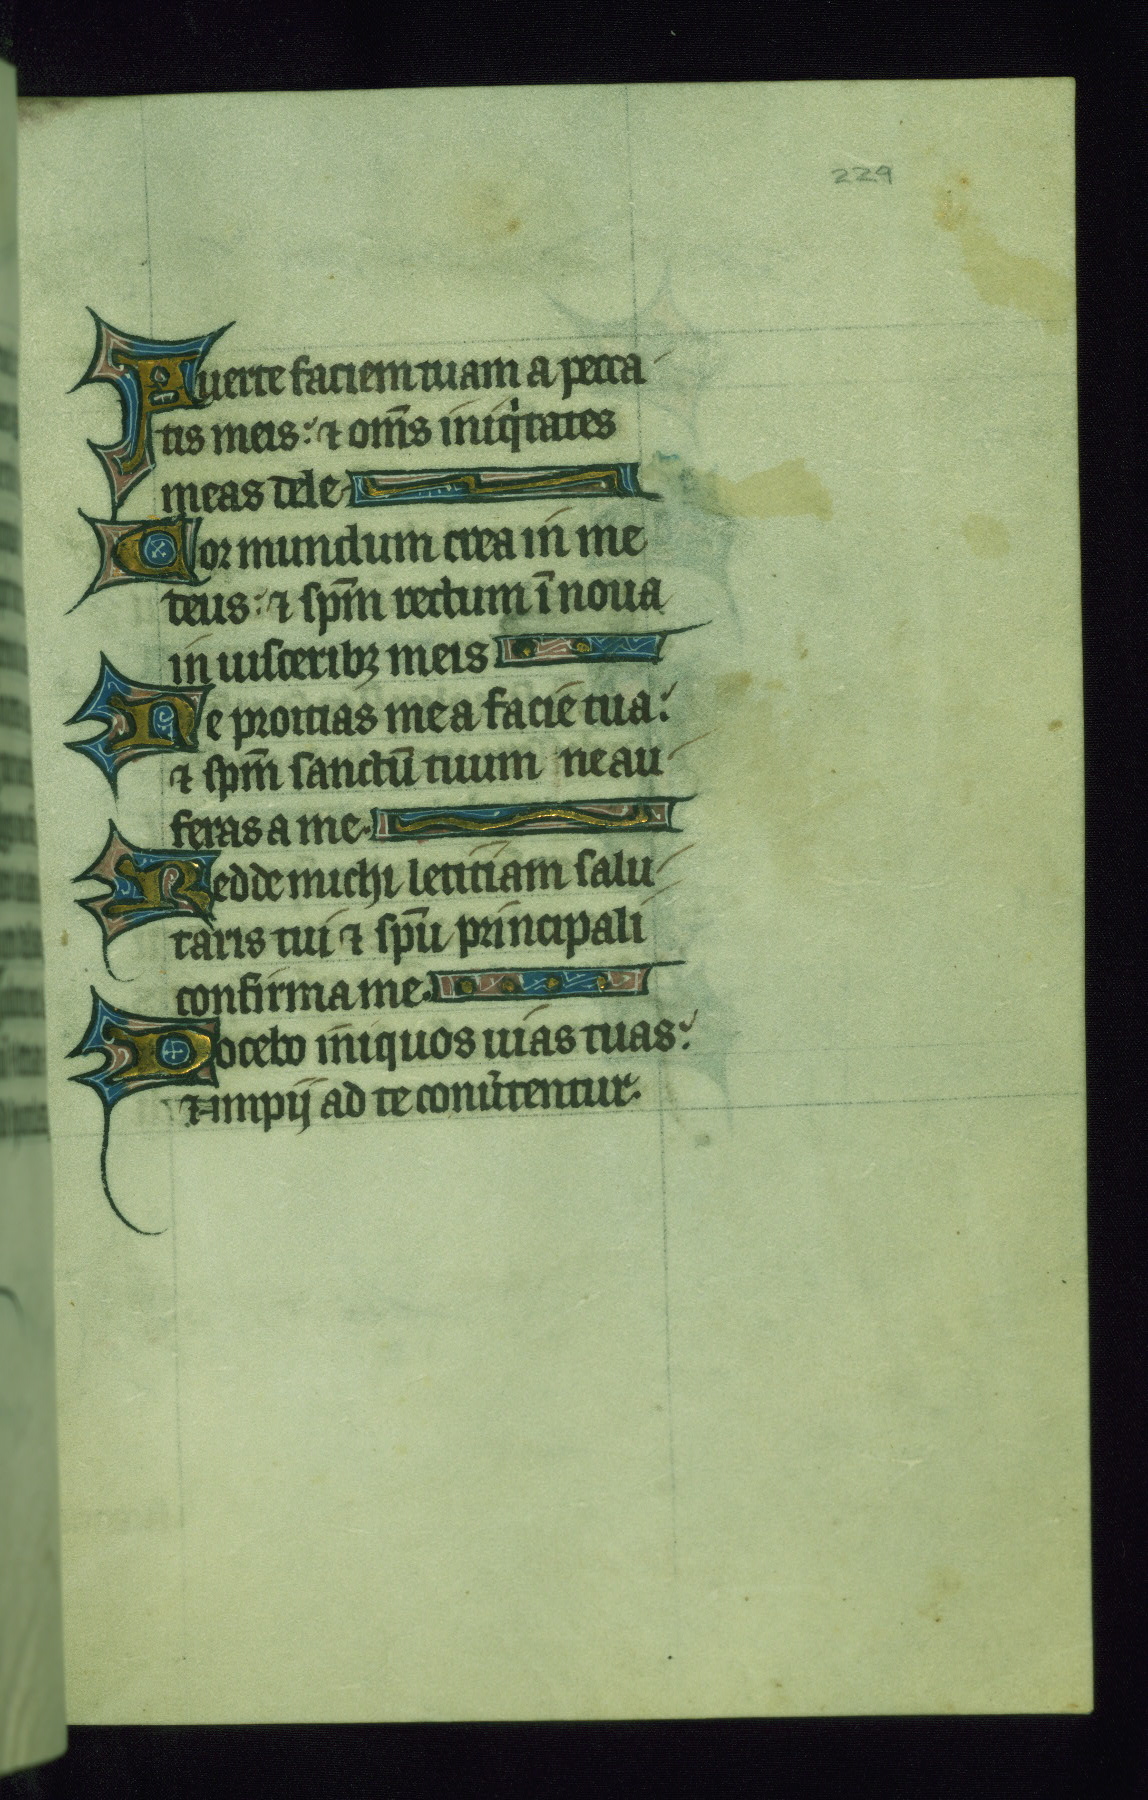 229
Auerte faciem tuam a pecca
tis meis: ⁊ om̅s iniqͥtates
meas dele
Cor mundum crea in me
deus: ⁊ sp̅m rectum i̅ noua
in uisceribꝫ meis
Ne proicias me a facie tua:
⁊ sp̅m sanctu̅ tuum ne au
feras a me.
Redde michi letitiam salu
taris tui ⁊ sp̅u principali
confirma me.
Docebo iniquos uias tuas:
⁊ impij ad te conu̅tentur.